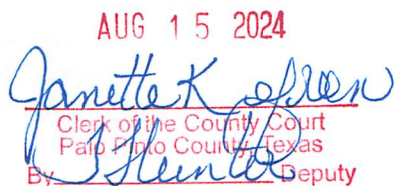 AUG 15 2024
Janette K
Clerk of the County Court
Palo Pinto County, Texas
By Deputy